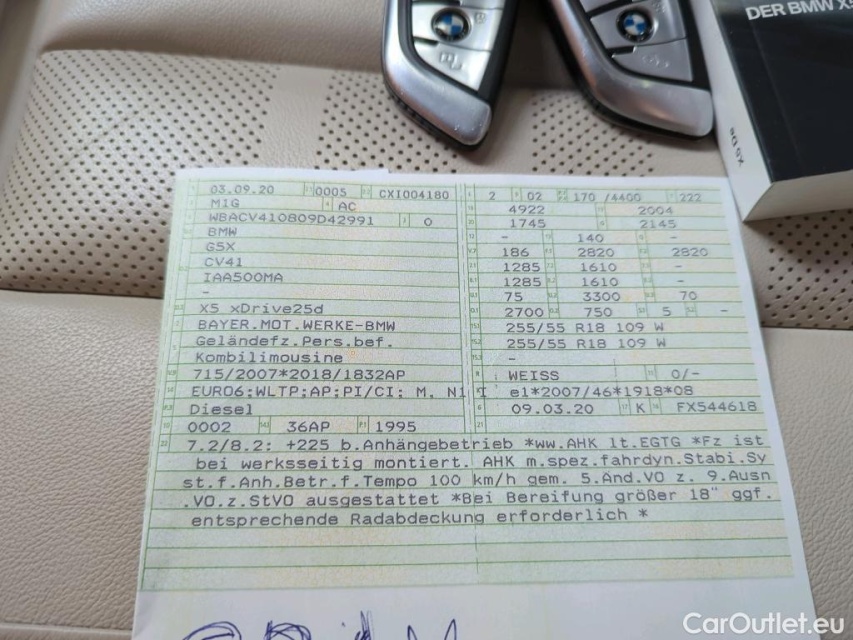 DER BMW X5
X5 DE
03.09.20 0005 CXI004180 2 02 170 /4400 222
M1G AC 4922 2004
WBACV410809D42991 0 1745 2145
BMW - 140 -
G5X 186 2820 2820
CV41 1285 1610 -
IAA500MA 1285 1610 -
- 75 3300 70
X5 xDrive25d 2700 750 5 -
BAYER.MOT.WERKE-BMW 255/55 R18 109 W
Geländefz.Pers.bef. 255/55 R18 109 W
Kombilimousine -
715/2007*2018/1832AP WEISS 0/-
EURO6;WLTP;AP;PI/CI; M, N1 I e1*2007/46*1918*08
Diesel 09.03.20 K FX544618
0002 36AP 1995
7.2/8.2: +225 b.Anhängebetrieb *ww.AHK lt.EGTG *Fz ist
bei werksseitig montiert. AHK m.spez.fahrdyn.Stabi.Sy
st.f.Anh.Betr.f.Tempo 100 km/h gem. 5.Änd.VO z. 9.Ausn
.VO.z.StVO ausgestattet *Bei Bereifung größer 18" ggf.
entsprechende Radabdeckung erforderlich *
CarOutlet.eu